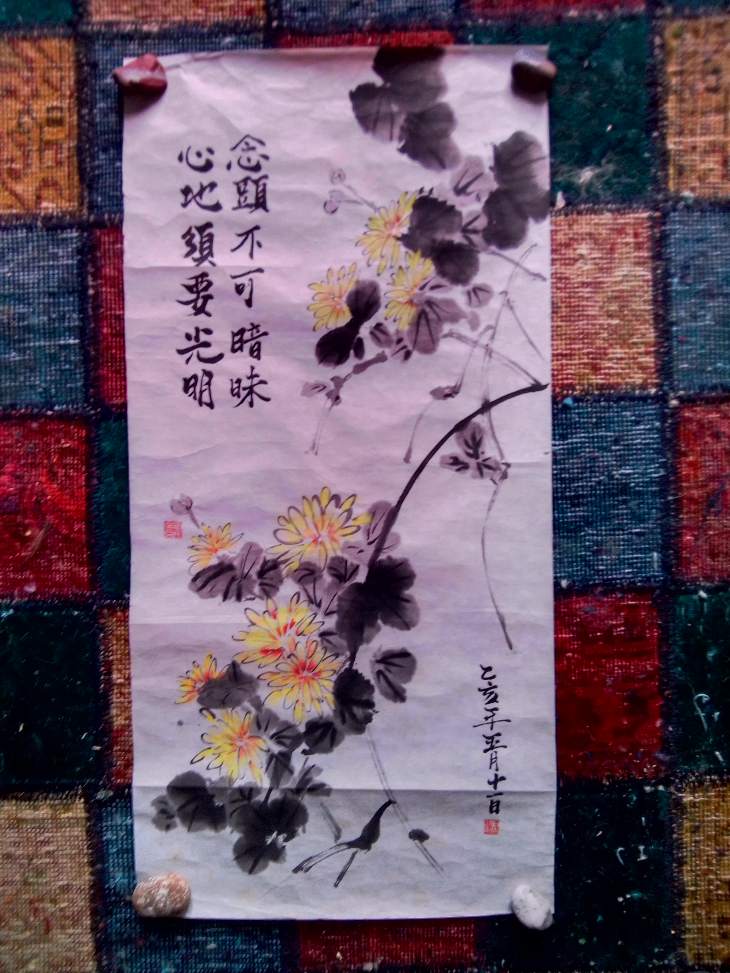 念頭不可暗昧
心地須要光明
乙亥年五月十一日